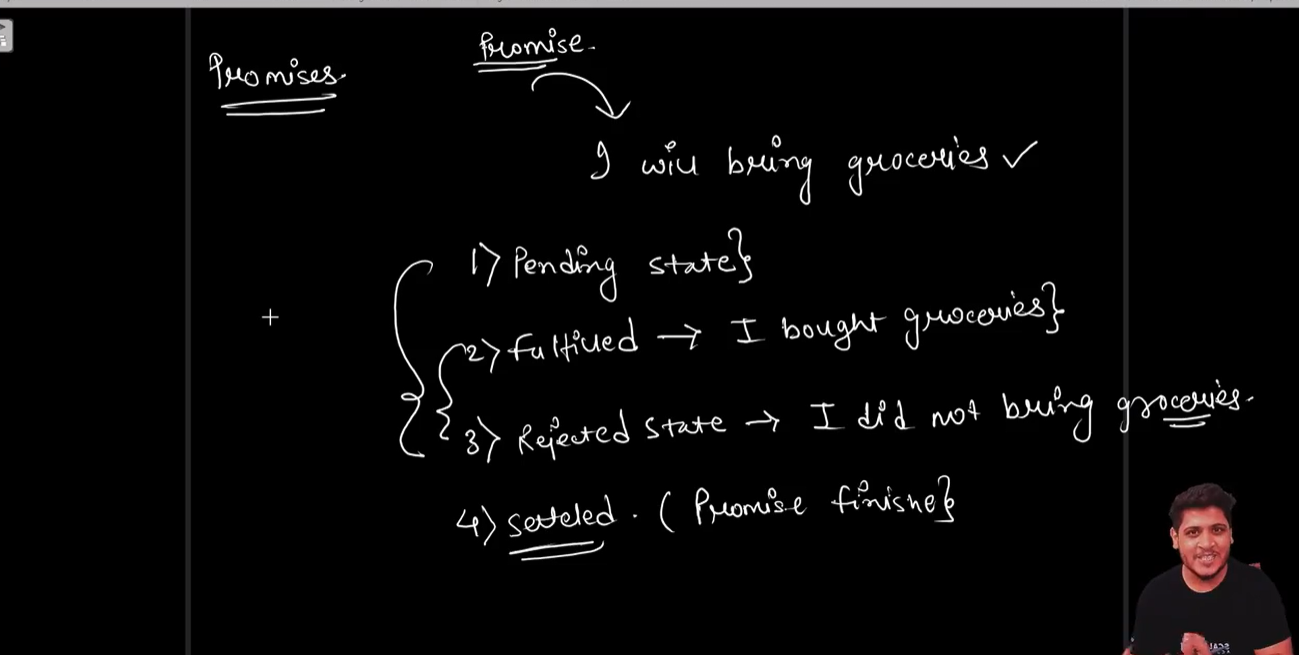 Promises.
Promise.
I will bring groceries ✓
1) Pending state}
2) fulfilled → I bought groceries}
3) Rejected state → I did not bring groceries.
4) setteled. (Promise finishe}